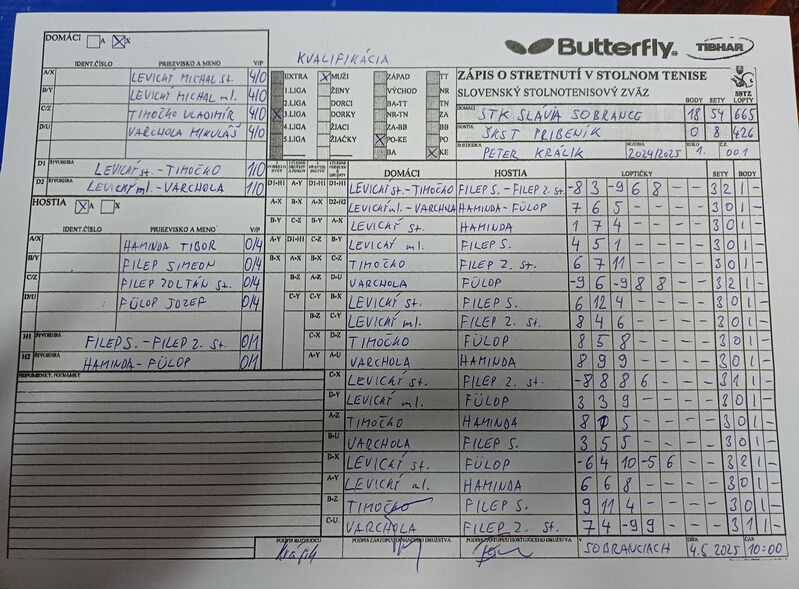 DOMÁCI A X
IDENT.ČÍSLO PRIEZVISKO A MENO V/P
A/X LEVICKÝ MICHAL st. 4/0
B/Y LEVICKÝ MICHAL ml. 4/0
C/Z TIMOČKO VLADIMÍR 4/0
D/U VARCHOLA MIKULÁŠ 4/0
D1 ŠTVORHRA LEVICKÝ st. - TIMOČKO 1/0
D2 LEVICKÝ ml. - VARCHOLA 1/0
HOSTIA A X
IDENT.ČÍSLO PRIEZVISKO A MENO V/P
A/X HAMINDA TIBOR 0/4
B/Y FILEP SIMEON 0/4
C/Z FILEP ZOLTÁN st. 0/4
D/U FÜLOP JOZEF 0/4
H1 ŠTVORHRA FILEP S. - FILEP Z. st. 0/1
H2 HAMINDA - FÜLOP 0/1
PRIPOMIENKY, POZNÁMKY
KVALIFIKÁCIA
EXTRA MUŽI ZÁPAD TT
1.LIGA ŽENY VÝCHOD NR
2.LIGA DORCI BA-TT TN
3.LIGA DORKY NR-TN ZA
4.LIGA ŽIACI ZA-BB BB
5.LIGA ŽIAČKY PO-KE PO
BA KE
Butterfly TIBHAR
ZÁPIS O STRETNUTÍ V STOLNOM TENISE
SLOVENSKÝ STOLNOTENISOVÝ ZVÄZ SSTZ
BODY SETY LOPTY
DOMÁCI STK SLÁVIA SOBRANCE 18 54 665
HOSTIA ŠKST PRIBENÍK 0 8 426
ROZHODCA PETER KRÁLIK SEZÓNA 2024/2025 1. Č. 001
DOMÁCI HOSTIA LOPTIČKY SETY BODY
D1-H1 LEVICKÝ st. - TIMOČKO FILEP S. - FILEP Z. st. -8 3 -9 6 8 - - 3 2 1 -
D2-H2 LEVICKÝ ml. - VARCHOLA HAMINDA - FÜLOP 7 6 5 - - - - 3 0 1 -
A-X LEVICKÝ st. HAMINDA 1 7 4 - - - - 3 0 1 -
B-Y LEVICKÝ ml. FILEP S. 4 5 1 - - - - 3 0 1 -
C-Z TIMOČKO FILEP Z. st. 6 7 11 - - - - 3 0 1 -
D-U VARCHOLA FÜLOP -9 6 -9 8 8 - - 3 2 1 -
B-X LEVICKÝ st. FILEP S. 6 12 4 - - - - 3 0 1 -
C-Y LEVICKÝ ml. FILEP Z. st. 8 4 6 - - - - 3 0 1 -
D-Z TIMOČKO FÜLOP 8 5 8 - - - - 3 0 1 -
A-U VARCHOLA HAMINDA 8 9 9 - - - - 3 0 1 -
C-X LEVICKÝ st. FILEP Z. st. -8 8 8 6 - - - 3 1 1 -
D-Y LEVICKÝ ml. FÜLOP 3 3 9 - - - - 3 0 1 -
A-Z TIMOČKO HAMINDA 8 5 - - - - 3 0 1 -
B-U VARCHOLA FILEP S. 3 5 5 - - - - 3 0 1 -
D-X LEVICKÝ st. FÜLOP -6 4 10 -5 6 - - 3 2 1 -
A-Y LEVICKÝ ml. HAMINDA 6 6 8 - - - - 3 0 1 -
B-Z TIMOČKO FILEP S. 9 11 4 - - - - 3 0 1 -
C-U VARCHOLA FILEP Z. st. 7 4 -9 9 - - - 3 1 1 -
PODPIS ROZHODCU PODPIS ZÁSTUPCU DOMÁCEHO DRUŽSTVA PODPIS ZÁSTUPCU HOSŤUJÚCEHO DRUŽSTVA V SOBRANCIACH DŇA 4.6.2025 ČAS 10:00